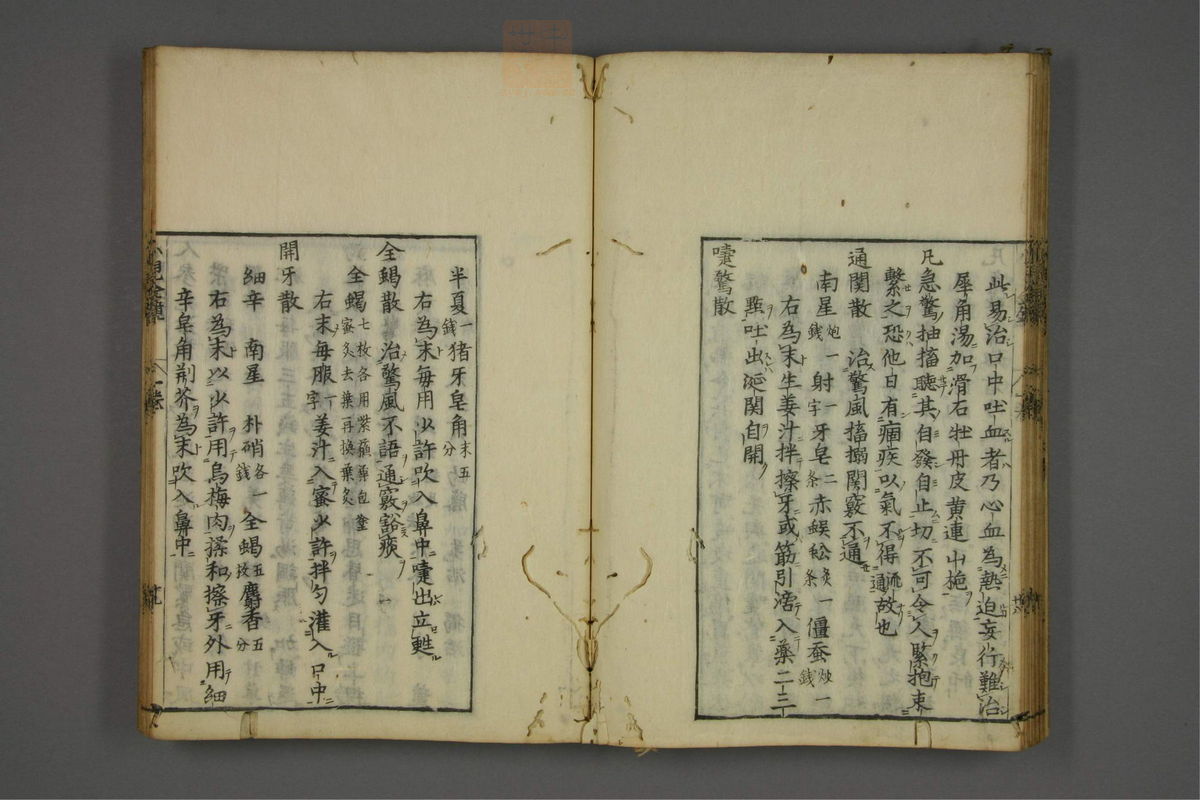 此易治口中吐血者乃心血為熱迫妄行難治
犀角湯加滑石牡丹皮黄連山梔
凡急驚抽搐聽其自發自止切不可令人緊抱束
繫之恐他日有痼疾以氣不得流通故也
通関散　治驚風搐搦関竅不通
南星炮一錢 射一字 牙皂二条 赤蜈蚣炙一条 僵蚕炒一錢
右為末生姜汁拌擦牙或筋引濡入藥二三
點吐出涎関自開
嚏驚散
半夏一錢 猪牙皂角末五分
右為末毎用少許吹入鼻中嚏出立甦
全蝎散　治驚風不語通竅豁痰
全蝎七枚各用紫蘓葉包塗蜜炙去葉再換葉炙
右末毎服一字姜汁入蜜少許拌匀灌入口中
開牙散
細辛　南星　朴硝各一錢 全蝎五枚 麝香五分
右為末以少許用烏梅肉揉和擦牙外用細
辛皂角荆芥為末吹入鼻中